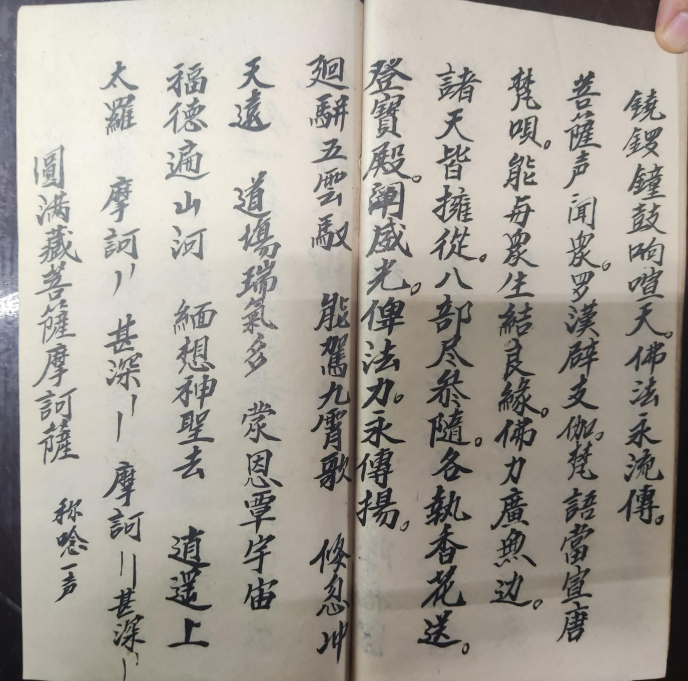 鐃鑼鐘鼓响喧天。佛法永流傳。
菩薩声闻眾。罗漢辟支伽。梵語當宣唐
梵唄。能与眾生結良緣。佛力廣無边。
諸天皆擁從。八部尽叅隨。各執香花送。
登寶殿。闡威光。俾法力。永傳揚。
廻駢五雲馭 能駕九霄歌 倏忽冲
天遠 道場瑞氣多 蒙恩覃宇宙
福德遍山河 緬想神聖去 逍遥上
太羅 摩訶〃 甚深〃 摩訶〃甚深〃
圓满藏菩薩摩訶薩 称唸一声